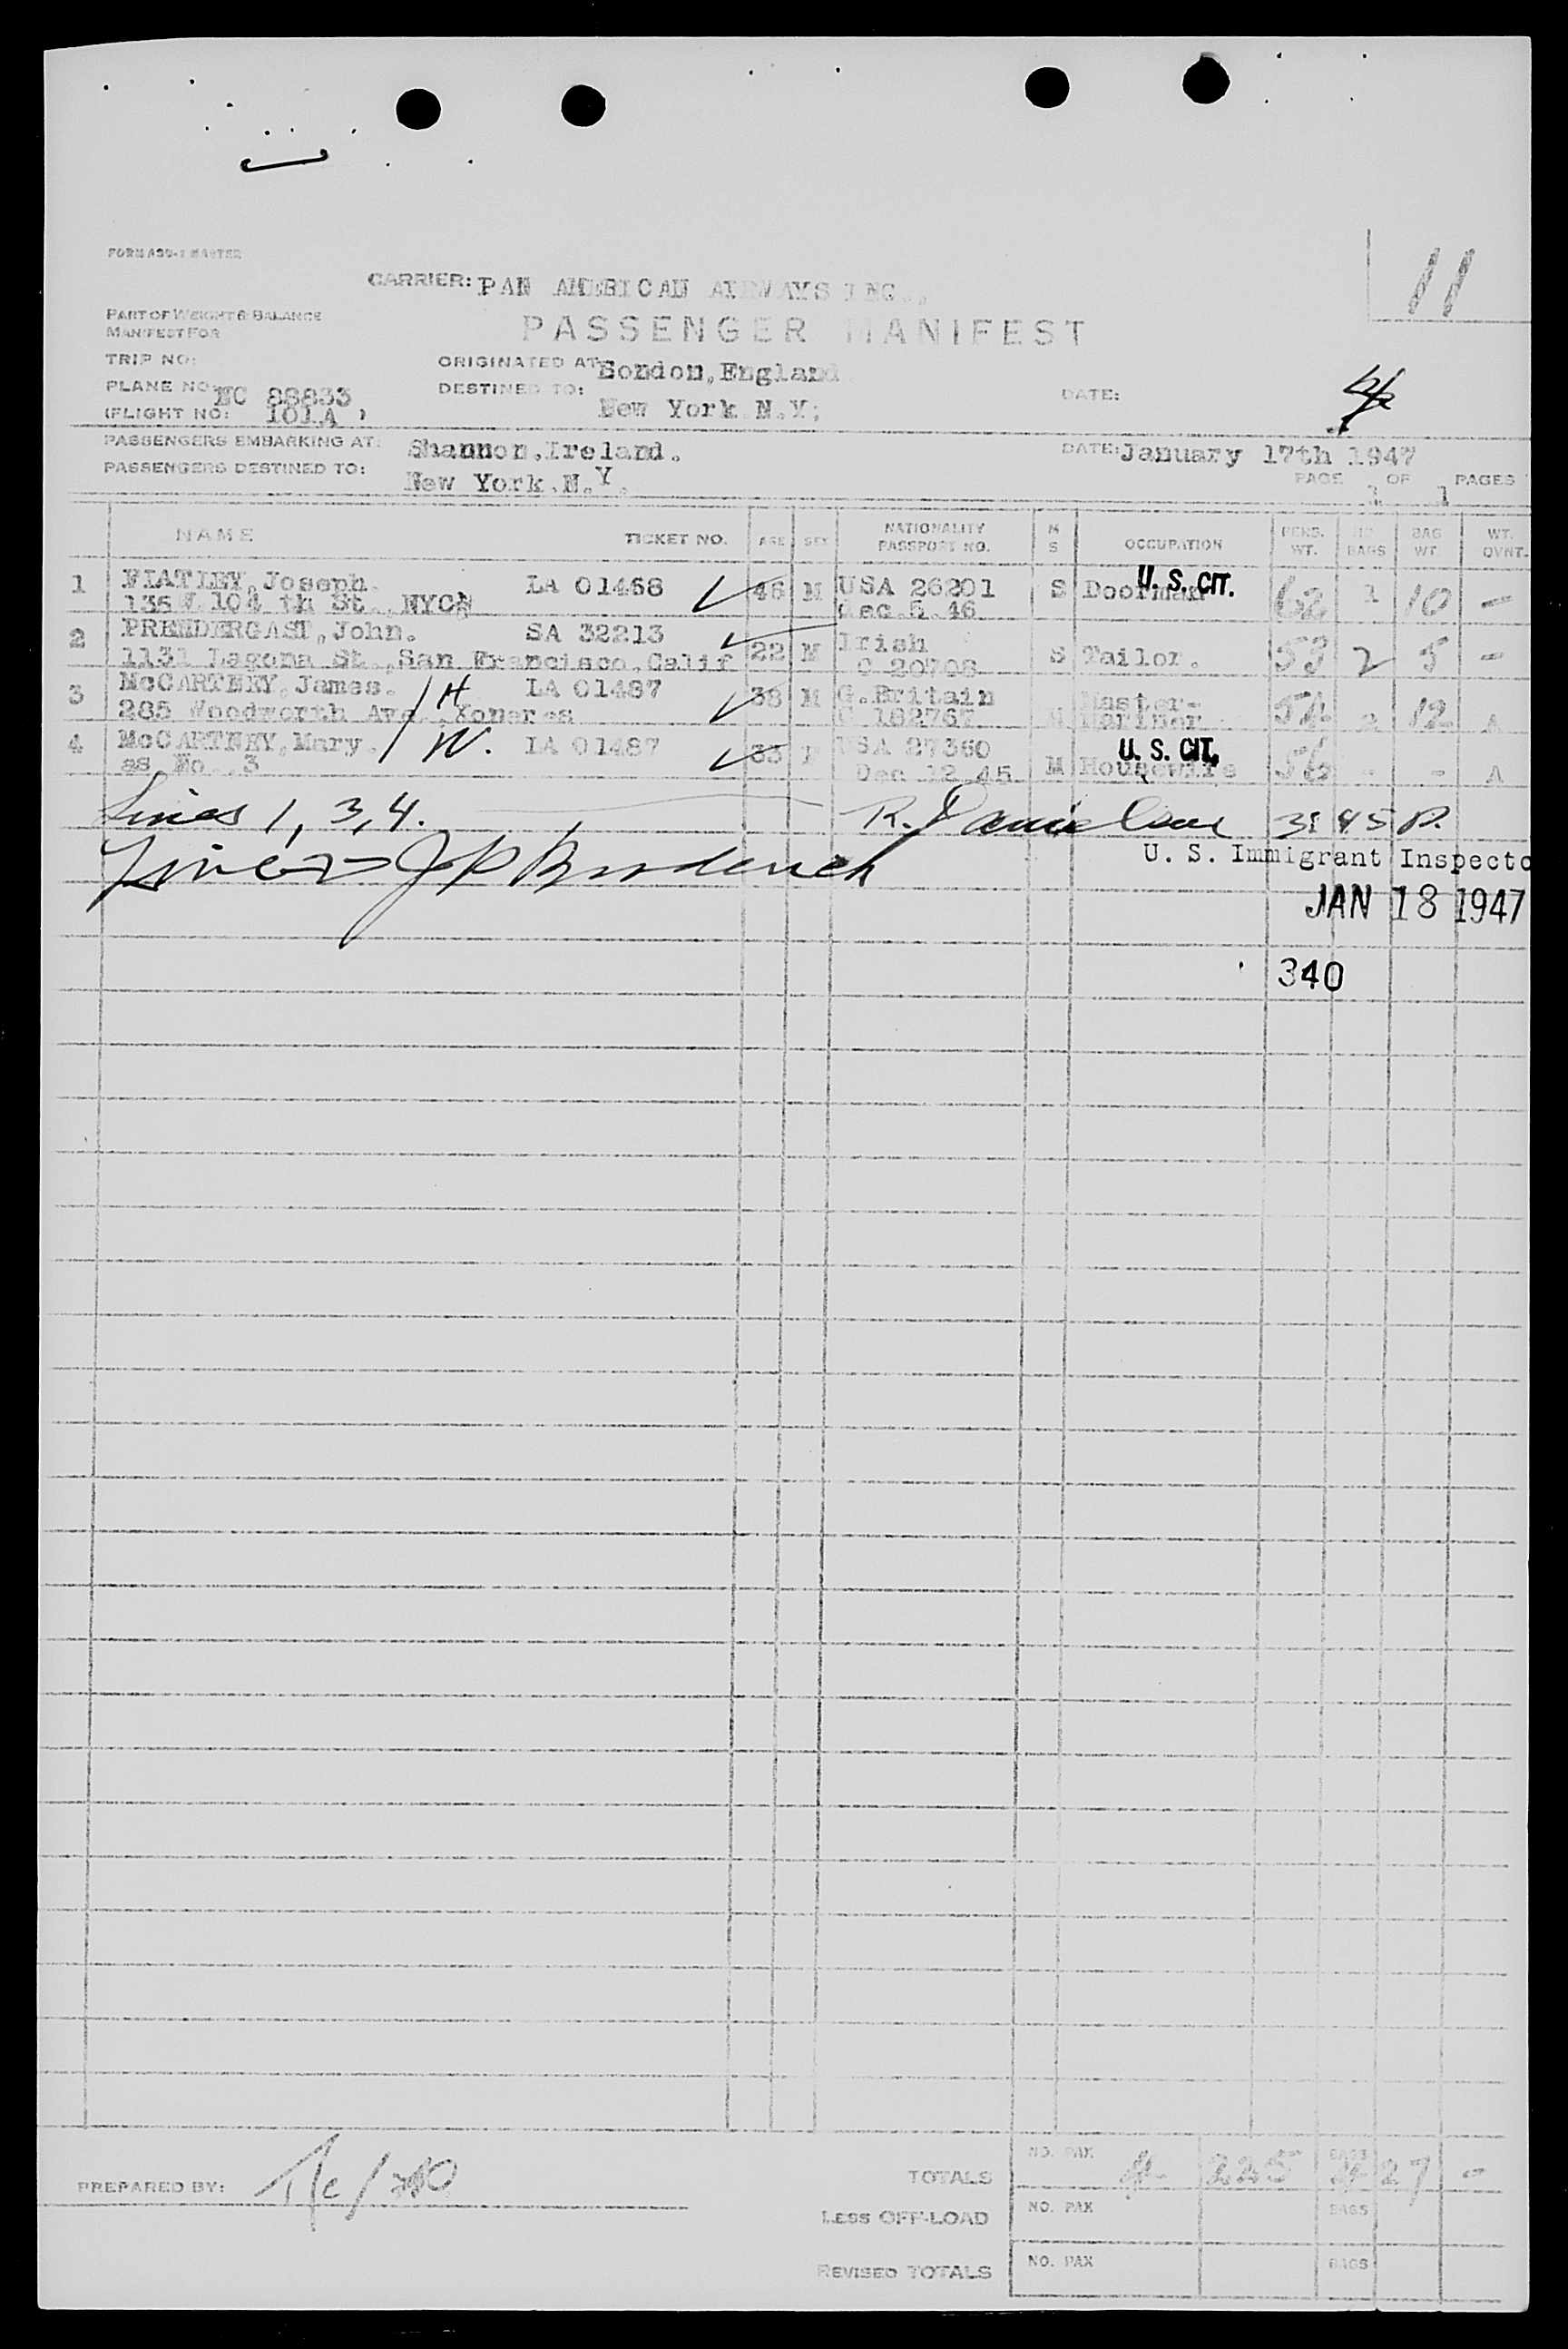 FORM ASD-1 MASTER
11
CARRIER: PAN AMERICAN AIRWAYS INC.,
PART OF WEIGHT & BALANCE
MANIFEST FOR
PASSENGER MANIFEST
TRIP NO:
ORIGINATED AT: London, England
PLANE NO: NC 88833
DESTINED TO: New York N.Y.
DATE:
(FLIGHT NO: 101A )
PASSENGERS EMBARKING AT: Shannon, Ireland.
DATE: January 17th 1947
PASSENGERS DESTINED TO: New York. N.Y.
PAGE OF 1 PAGES
NAME TICKET NO. AGE SEX NATIONALITY PASSPORT NO. M S OCCUPATION PERS. WT. NO BAGS BAG WT WT. OVNT.
1 FLATLEY, Joseph. LA 01468 46 M USA 26201 S Doorman U. S. CIT. 62 1 10 -
135 W 104 th St. NYC dec. 5. 46
2 PRENDERGAST, John. SA 32213 22 M Irish S Tailor. 53 2 5 -
1131 Laguna St., San Francisco, Calif C 20708
3 McCARTNEY, James. / H LA 01487 38 M G. Britain Master- 54 2 12 A
285 Woodworth Ave., Yonkers 182767 M Mariner
4 McCARTNEY, Mary. / W. LA 01487 33 F USA 27360 U. S. CIT.
as No. 3 Dec 12. 45 M Housewife 56 - - A
Lines 1, 3, 4. R. Danielson 3:45 P.
J P Broderick
U. S. Immigrant Inspecto
JAN 18 1947
340
PREPARED BY:
TOTALS NO. PAX 4 225 BAGS 27 -
LESS OFF-LOAD NO. PAX BAGS
REVISED TOTALS NO. PAX BAGS